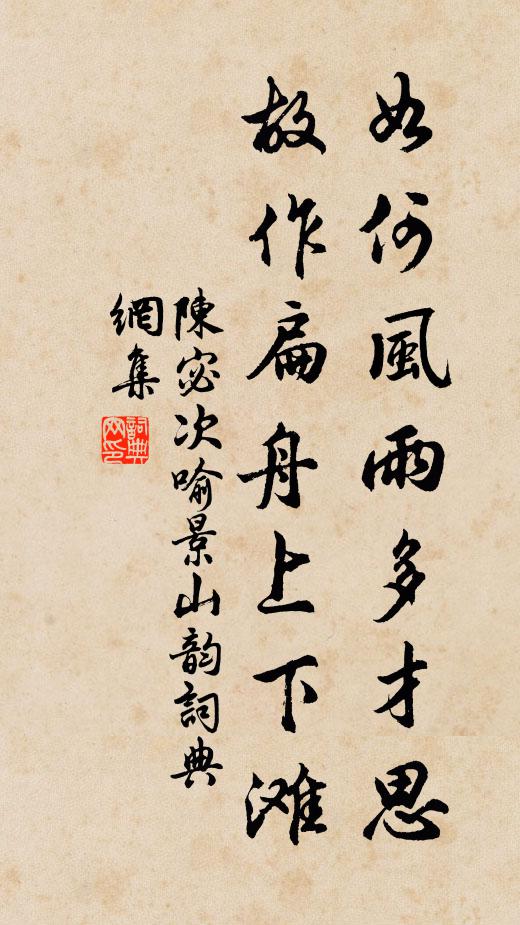 如何風雨多才思
故作扁舟上下滩
陳宓次喻景山韵詞典
網集
詞典
网印